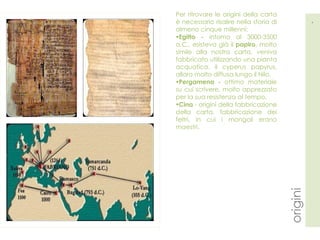 Per ritrovare le origini della carta
è necessario risalire nella storia di
almeno cinque millenni:
•Egitto - intorno al 3000-3500
a.C., esisteva già il papiro, molto
simile alla nostra carta, veniva
fabbricato utilizzando una pianta
acquatica, il cyperus papyrus,
allora molto diffusa lungo il Nilo.
•Pergamena - ottimo materiale
su cui scrivere, molto apprezzato
per la sua resistenza al tempo.
•Cina - origini della fabbricazione
della carta, fabbricazione dei
feltri, in cui i mongoli erano
maestri.
origini
Samarcanda
(751 d.C.)
Damasco
Bagdad (793 d.C.)
Lo-Yang
(105 d.C.)
Cairo
1000
Fes
1100